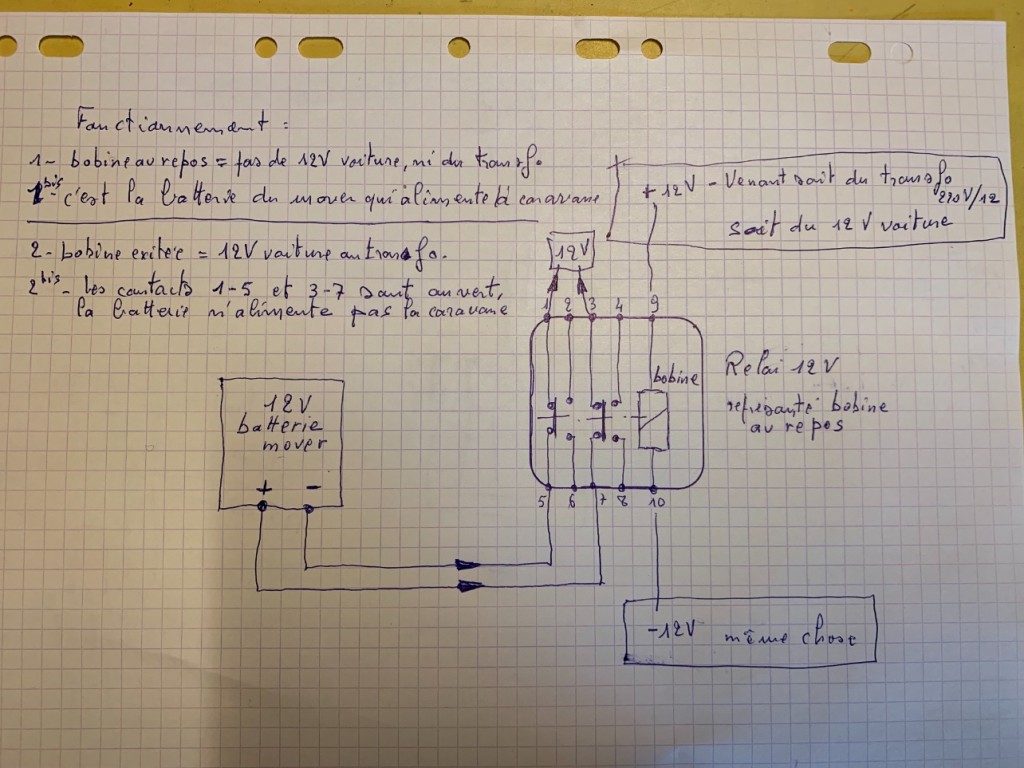 Fonctionnement :
1- bobine au repos = pas de 12V voiture, ni du transfo.
1bis - c'est la batterie du mover qui alimente la caravane
2- bobine exitée = 12V voiture ou transfo.
2bis - Les contacts 1-5 et 3-7 sont ouvert,
la batterie n'alimente pas la caravane
+12V - Venant soit du transfo
220V/12
soit du 12V voiture
12V
1 2 3 4 9
bobine
Relai 12V
représanté bobine
au repos
12V
batterie
mover
+ -
5 6 7 8 10
-12V même chose